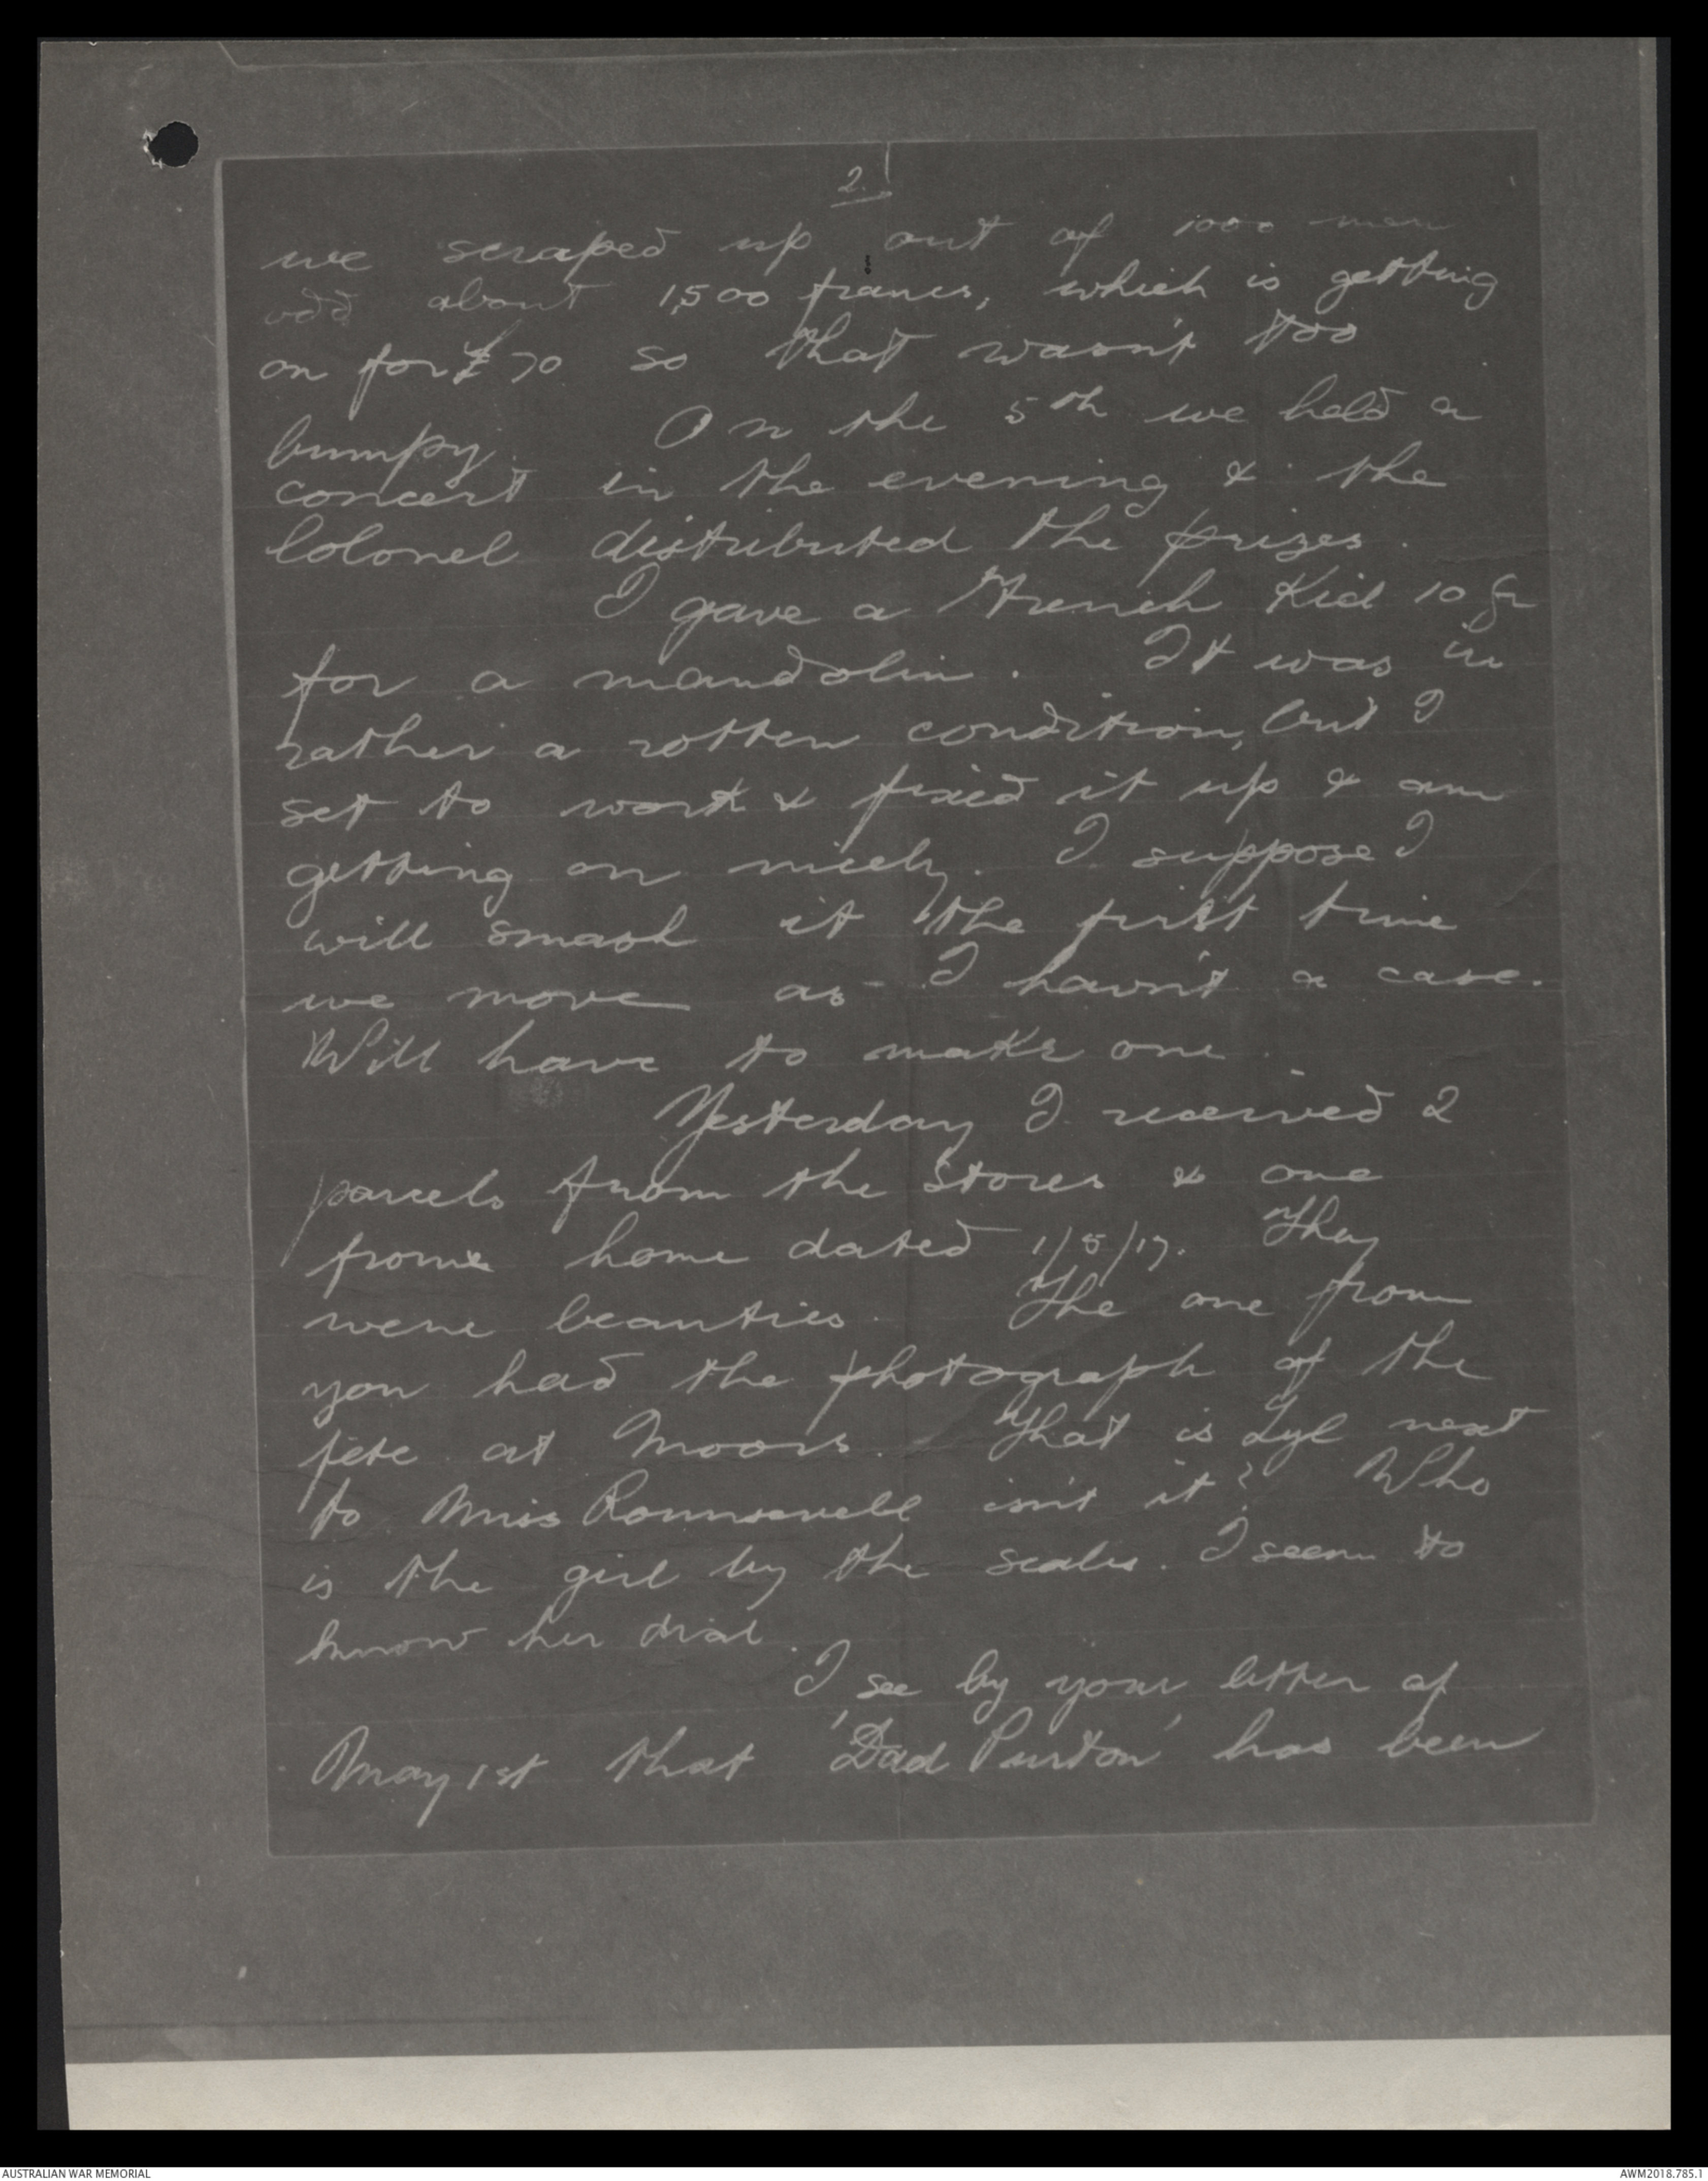 2.
we scraped up out of 1000 men
odd about 1,500 francs, which is getting
on for £70 so that wasn't too
bumpy. On the 5th we held a
concert in the evening & the
Colonel distributed the prizes.
I gave a French Kid 10 fr
for a mandolin. It was in
rather a rotten condition, but I
set to work & fixed it up & am
getting on nicely. I suppose I
will smash it the first time
we move as I havn't a case.
Will have to make one.
Yesterday I received 2
parcels from the Stores & one
from home dated 1/5/17. They
were beauties. The one from
you had the photograph of the
fete at Moors. That is Lyl next
to Miss Rounsevell isn't it? Who
is the girl by the scales. I seem to
know her dial.
I see by your letter of
May 1st that 'Dad Purton' has been
AUSTRALIAN WAR MEMORIAL
AWM2018.785.1